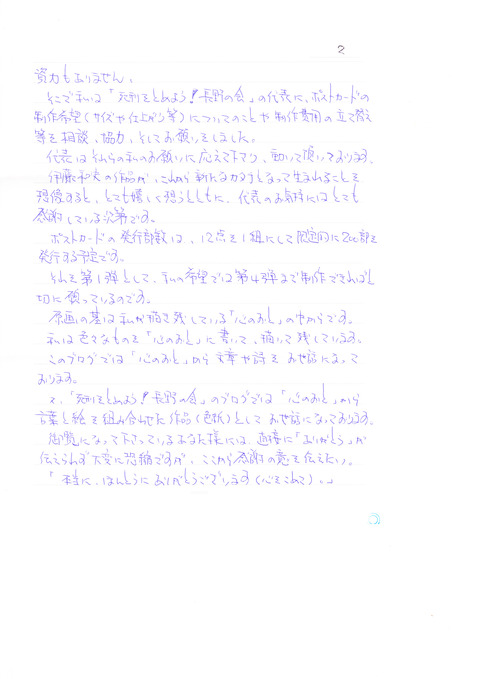 2
資力もありません。
そこで私は「死刑をとめよう!長野の会」の代表に、ポストカードの
制作希望(サイズや仕上がり等)についてのことや制作費用の立て替え
等を相談、協力、そしてお願いをしました。
代表はそれらの私のお願いに応えて下さり、動いて頂いております。
伊藤和史の作品が、これから新たなカタチとなって生まれることを
想像すると、とても嬉しく思うとともに、代表のお気持にはとても
感謝している次第です。
ポストカードの発行部数は、12点を1組にして限定的に200部を
発行する予定です。
それを第1弾として、私の希望では第4弾まで制作できればと
切に願っているのです。
原画の基は私が描き残している「心のおと」の中からです。
私は色々なものを「心のおと」に書いて、描いて残しています。
このブログでは「心のおと」から文章や詩をお世話になって
おります。
又、「死刑をとめよう!長野の会」のブログでは「心のおと」から
言葉と絵を組み合わせた作品(色紙)としてお世話になっております。
御覧になって下さっているあなた様には、直接に「ありがとう」が
伝えられず大変に恐縮ですが、ここから感謝の意を伝えたい。
「本当に、ほんとうにありがとうございます(心をこめて)。」